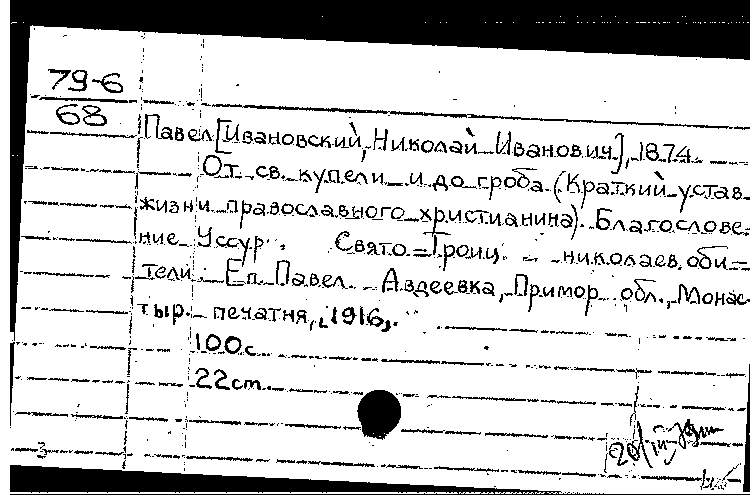 79-6
68
Павел [Ивановский, Николай Иванович], 1874
От св. купели и до гроба. (Краткий устав
жизни православного христианина). Благослове-
ние Уссур. Свято-Троиц. - николаев. оби-
тели. Еп. Павел. Авдеевка, Примор. обл., Монас-
тыр. печатня, [1916].
100с
22см.
20/III
3